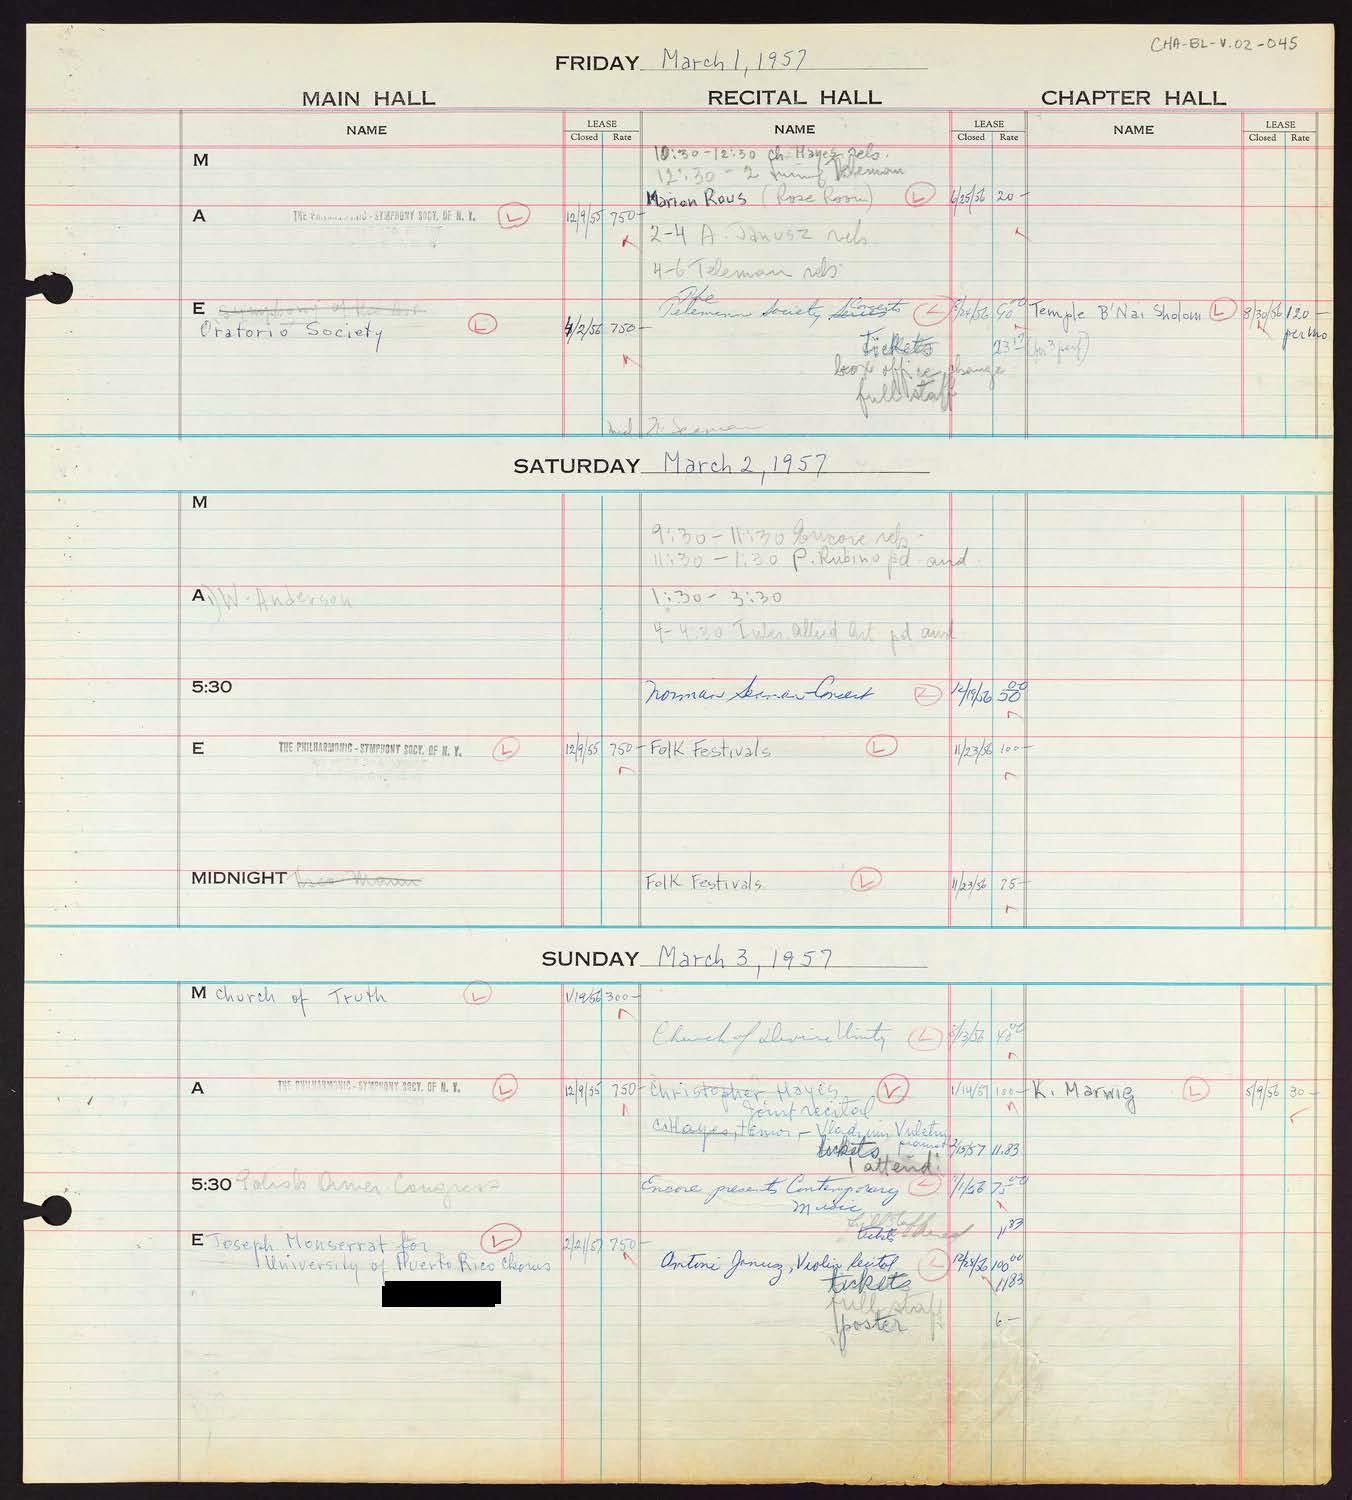 CHA-BL-V.02-045
FRIDAY March 1, 1957
MAIN HALL RECITAL HALL CHAPTER HALL
NAME LEASE Closed Rate NAME LEASE Closed Rate NAME LEASE Closed Rate
M
10:30-12:30 Ch. Hayes rehs.
12:30 - 2
Marion Rous (Rose Room) L 6/25/56 20-
A THE PHILHARMONIC-SYMPHONY SOCY. OF N. Y. L 12/9/55 750-
2-4 A. Janusz rehs.
4-6 Teleman rehs
E Symphony of the Air
Oratorio Society L 4/2/56 750-
The Telemann Society Concerts Series L /56 50 00
Temple B'Nai Sholom L 8/30/56 120- per mo
tickets 23 (for 3 perf)
box office change
full staff
N. Seaman
SATURDAY March 2, 1957
M
9:30-11:30 Encore rehs.
11:30-1:30 P. Rubino pd. and.
A W. Anderson
1:30-3:30
4-4:30 Inter. Allied Art pd aud
5:30 Norman Seaman Concert L 12/19/56 50 00
E THE PHILHARMONIC-SYMPHONY SOCY. OF N. Y. L 12/9/55 750- Folk Festivals L 11/23/56 100-
MIDNIGHT
Folk Festivals L 11/23/56 75-
SUNDAY March 3, 1957
M Church of Truth L 1/19/56 300-
Church of Divine Unity L /13/56 40 00
A THE PHILHARMONIC-SYMPHONY SOCY. OF N. Y. L 12/9/55 750- Christopher Hayes L 1/14/57 100- K. Marwig L 5/9/56 30-
Joint recital
C. Hayes, tenor, - Vladimir
tickets 2/15/57 11.83
1 attend.
5:30 Polish Amer. Congress
Encore presents Contemporary L /1/56 75 00
Music
full staff
tickets 11 83
E Joseph Monserrat for L 2/21/57 750-
University of Puerto Rico Chorus
Antoni Janusz, Violin Recital L 12/28/56 100 00
tickets 11 83
full staff
poster 6.-